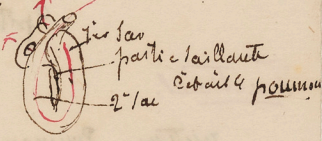 1er sac
partie saillante
c'était le poumon
2e sac